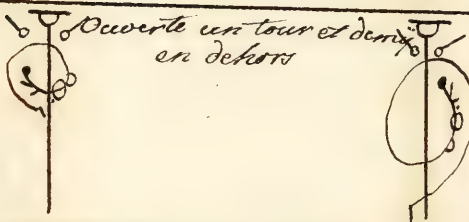 Ouverte un tour et demÿ
en dehors